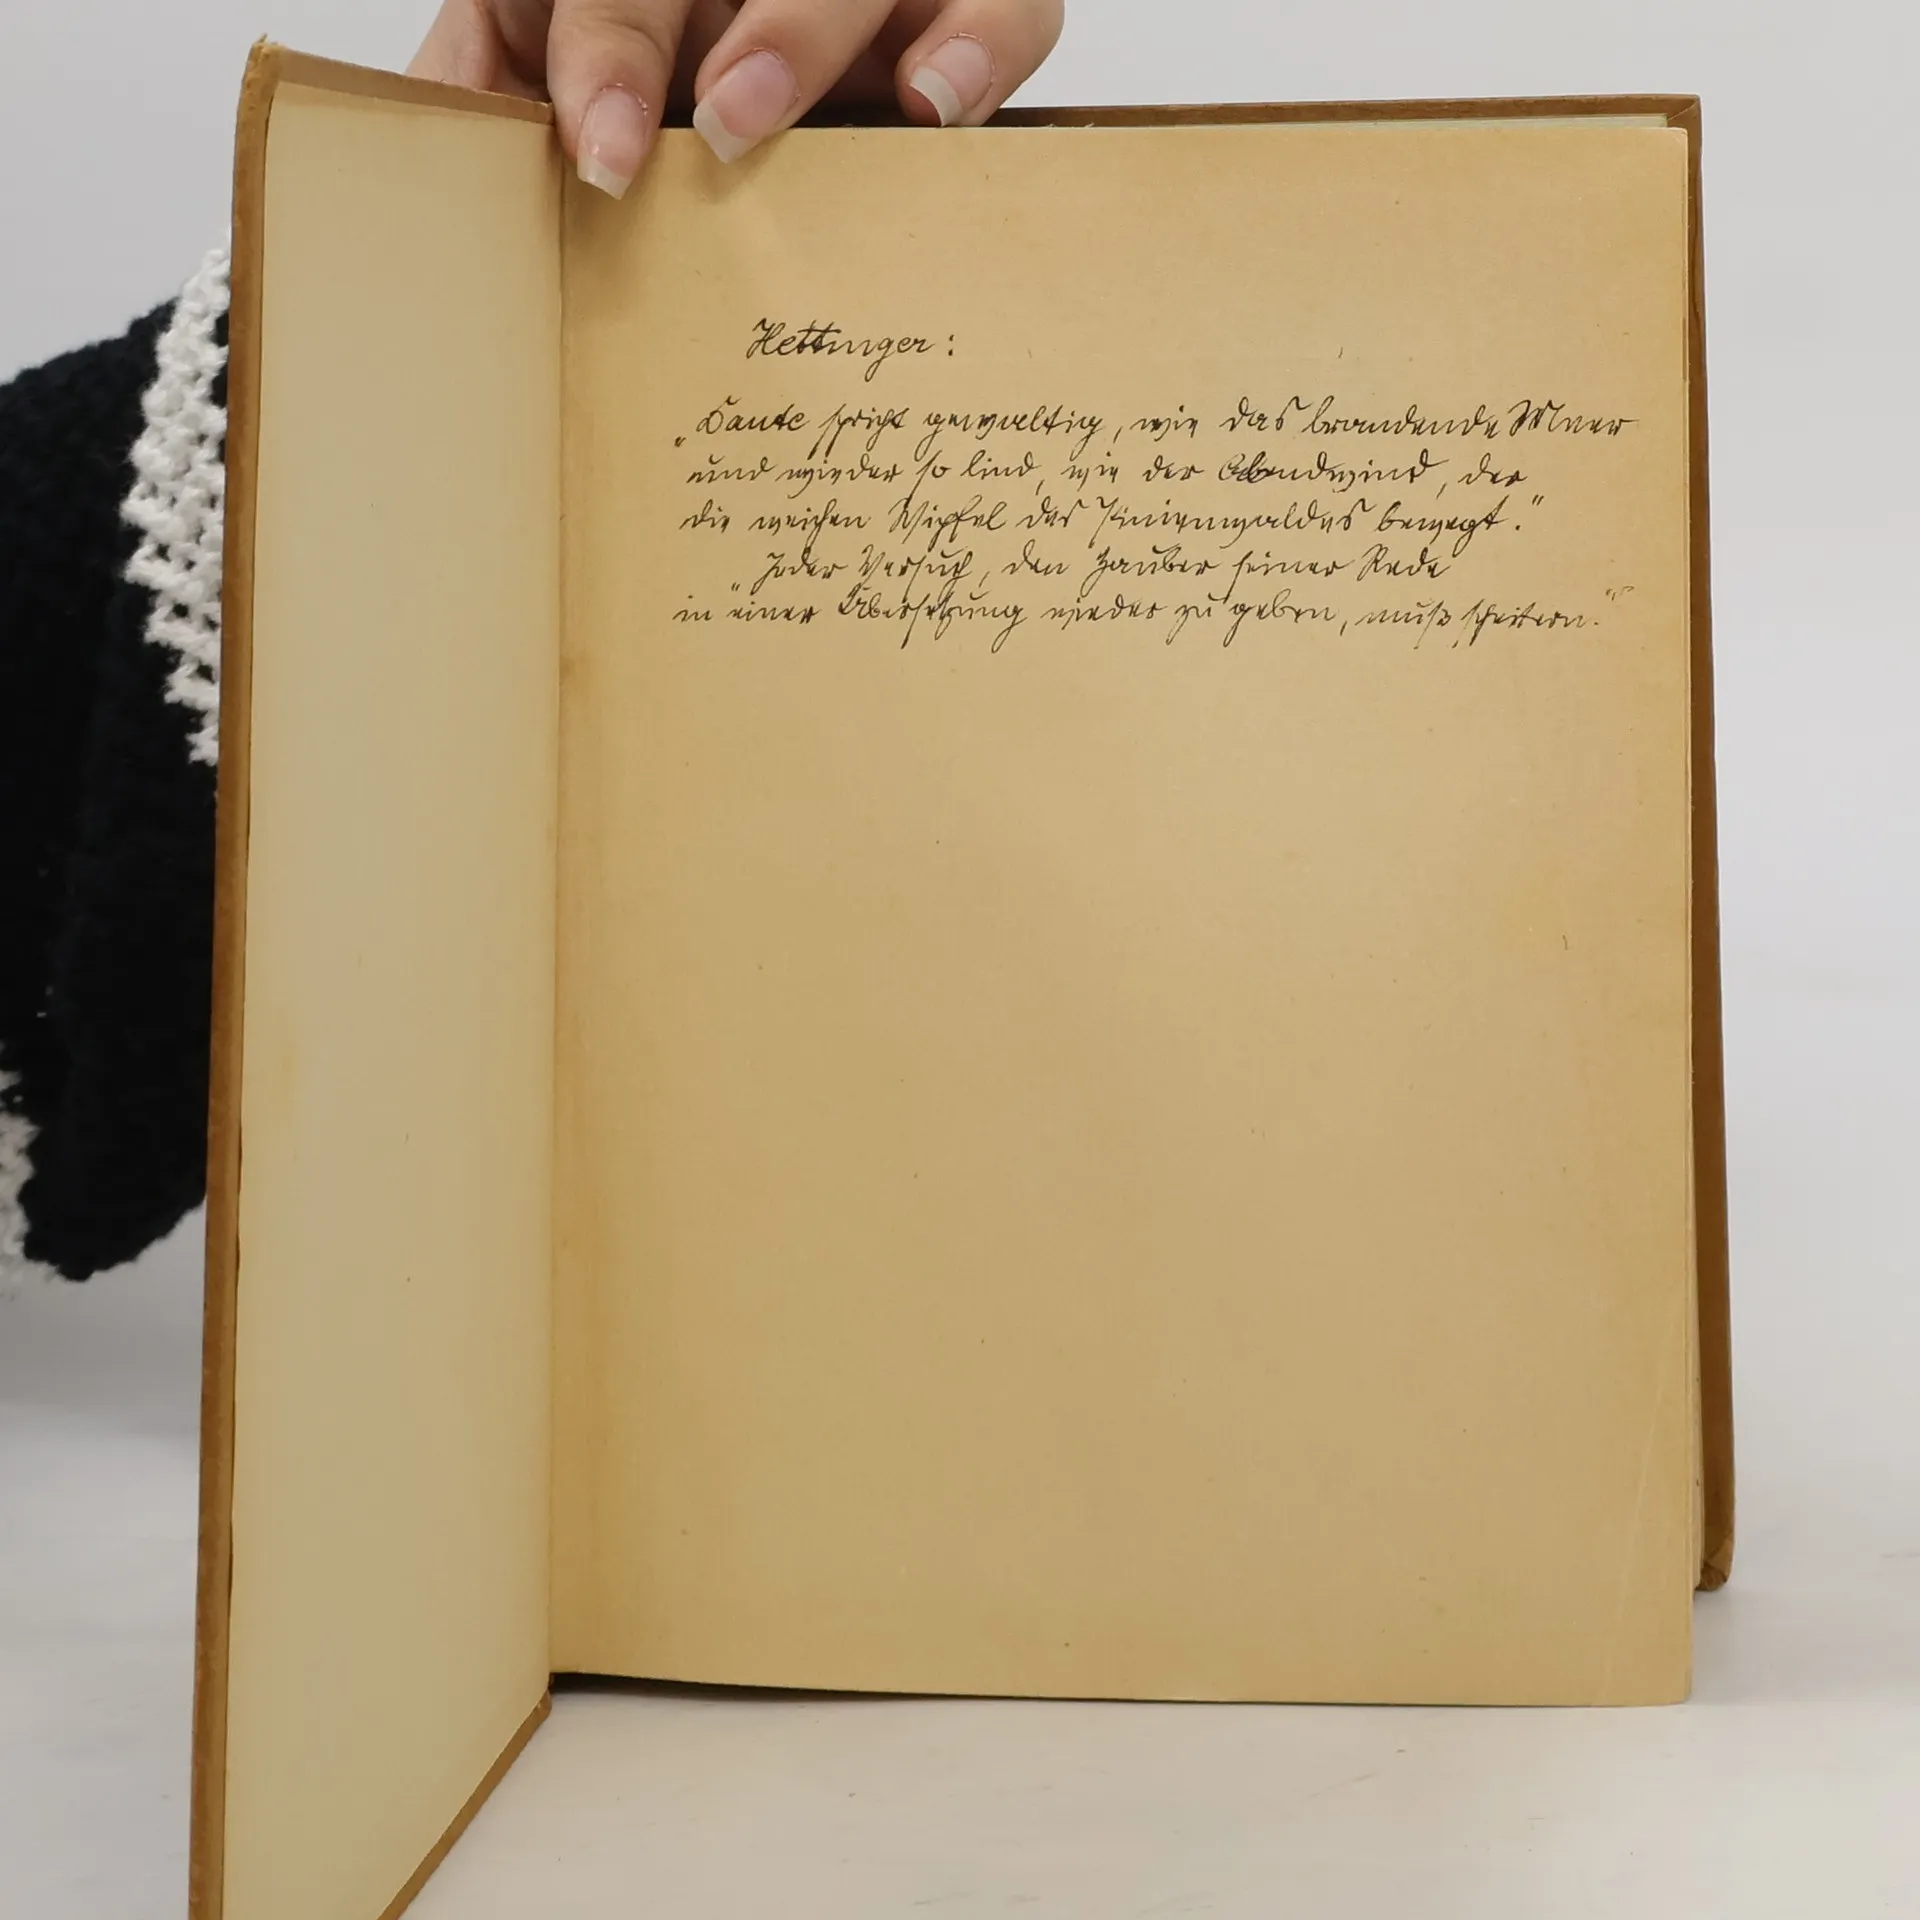 Hettinger:
„Dante spricht gewaltig, wie das brandende Meer
und wieder so lind, wie der Abendwind, der
die weichen Wipfel des Pinienwaldes bewegt.“
„Jeder Versuch, den Zauber seiner Rede
in einer Übersetzung wieder zu geben, muß scheitern.“